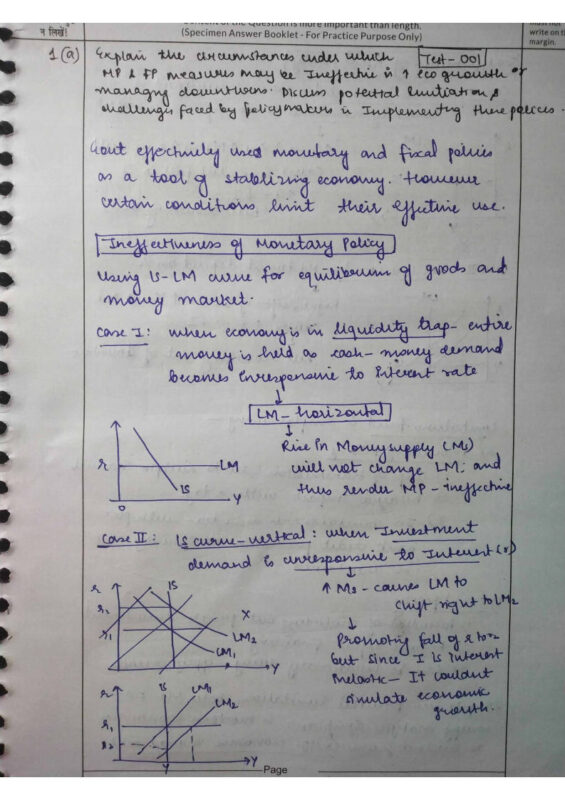 Content of the Question is more important than length.
न लिखें!
(Specimen Answer Booklet - For Practice Purpose Only)
write on
margin.
1(a) Explain the circumstances under which
Test-001
MP & FP measures may be Ineffective in ↑ eco growth or
managing downturns. Discuss potential limitations &
challenges faced by policymakers in Implementing these policies.
Govt effectively uses monetary and fiscal policies
as a tool of stabilizing economy. However
certain conditions limit their effective use.
Ineffectiveness of Monetary Policy
Using IS-LM curve for equilibrium of goods and
money market.
Case I: when economy is in liquidity trap- entire
money is held as cash- money demand
becomes irresponsive to Interest rate
↓
LM-horizontal
↓
Rise in Money supply (Ms)
will not change LM; and
thus render MP-ineffective
r
LM
IS
O
Y
Case II: IS curve-vertical: when Investment
demand is unresponsive to Interest(r)
↓
↑ Ms - causes LM to
shift right to LM2
↓
Promoting fall of r to r2
but since I is interest
inelastic- It couldnt
simulate economic
growth.
r
IS
r2
r1
X
LM2
LM1
Y
r
IS
LM1
LM2
r1
r2
Y
Y
Page